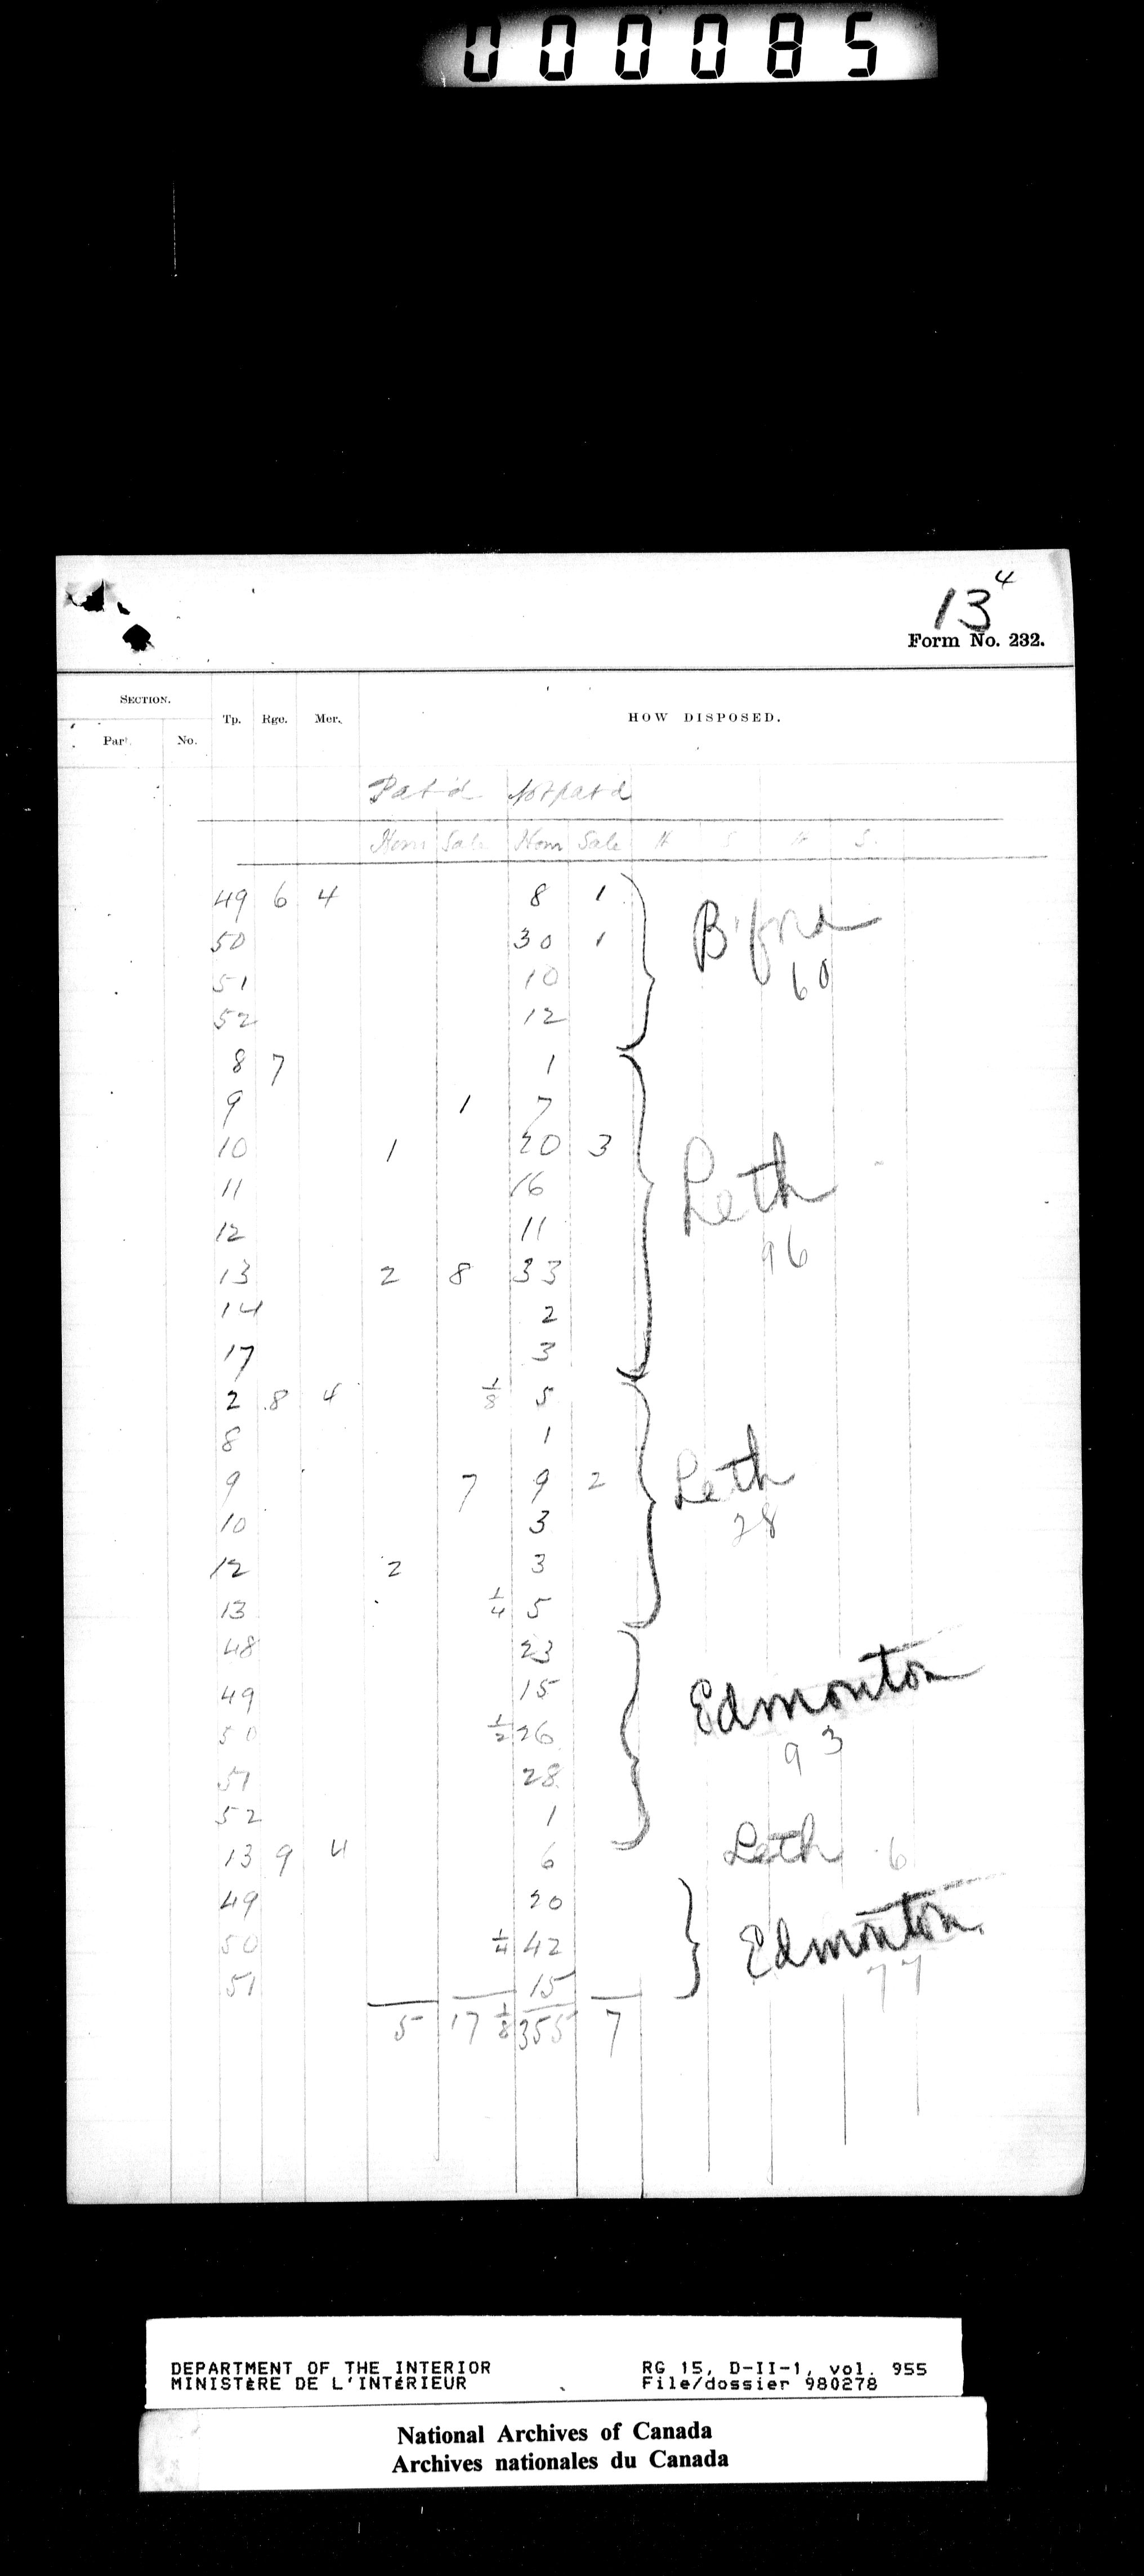 000085
13 4
Form No. 232.
SECTION. Tp. Rge. Mer. HOW DISPOSED.
Part. No.
Pat'd Notpat'd
Hom Sale Hom Sale H S H S.
49 6 4 8 1
50 30 1
B'ford
51 10
60
52 12
8 7 1
9 1 7
10 1 20 3
11 16
Leth
12 11
96
13 2 8 33
14 2
17 3
2 8 4 1/8 5
8 1
9 7 9 2
Leth
10 3
28
12 2 3
13 1/4 5
48 23
49 15
Edmonton
50 1/2 26
93
51 28
52 1
13 9 4 6 Leth 6
49 20
50 1/4 42
Edmonton
51 15
77
5 17 1/8 355 7
DEPARTMENT OF THE INTERIOR RG 15, D-II-1, vol. 955
MINISTÈRE DE L'INTÉRIEUR File/dossier 980278
National Archives of Canada
Archives nationales du Canada